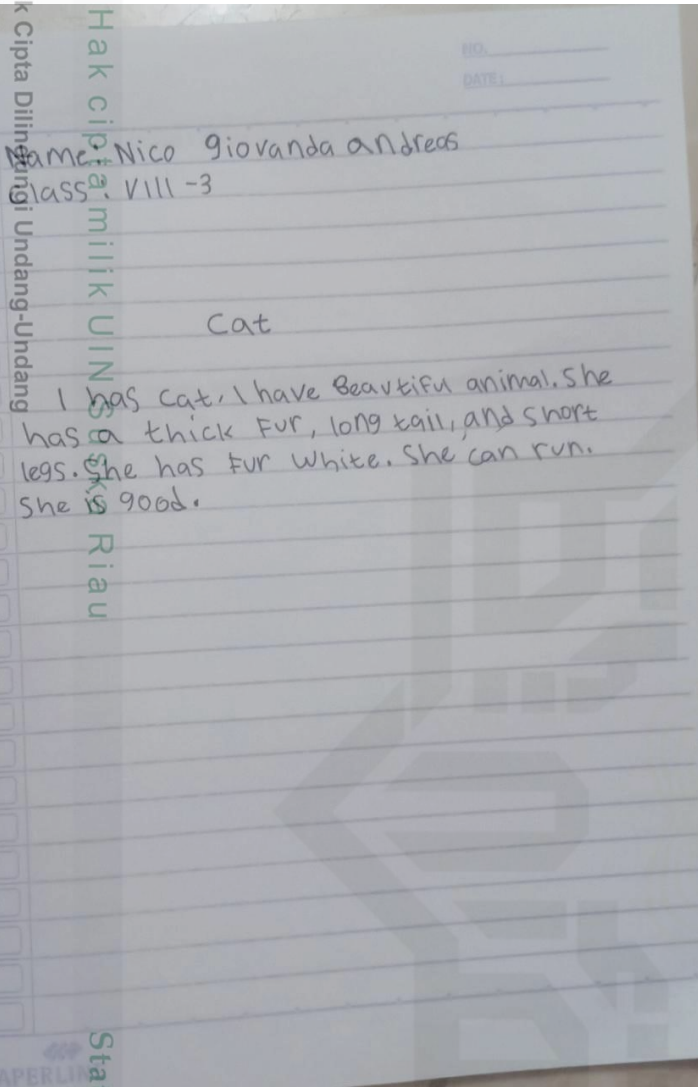 NO.
DATE:
Name: Nico giovanda andreas
Class: VIII-3
Cat
I has cat, I have Beautifu animal. She
has a thick Fur, long tail, and short
legs. She has Fur White. She can run.
She is good.
k Cipta Dilindungi Undang-Undang
Hak cipta milik UIN Suska Riau
Sta
APERLIN